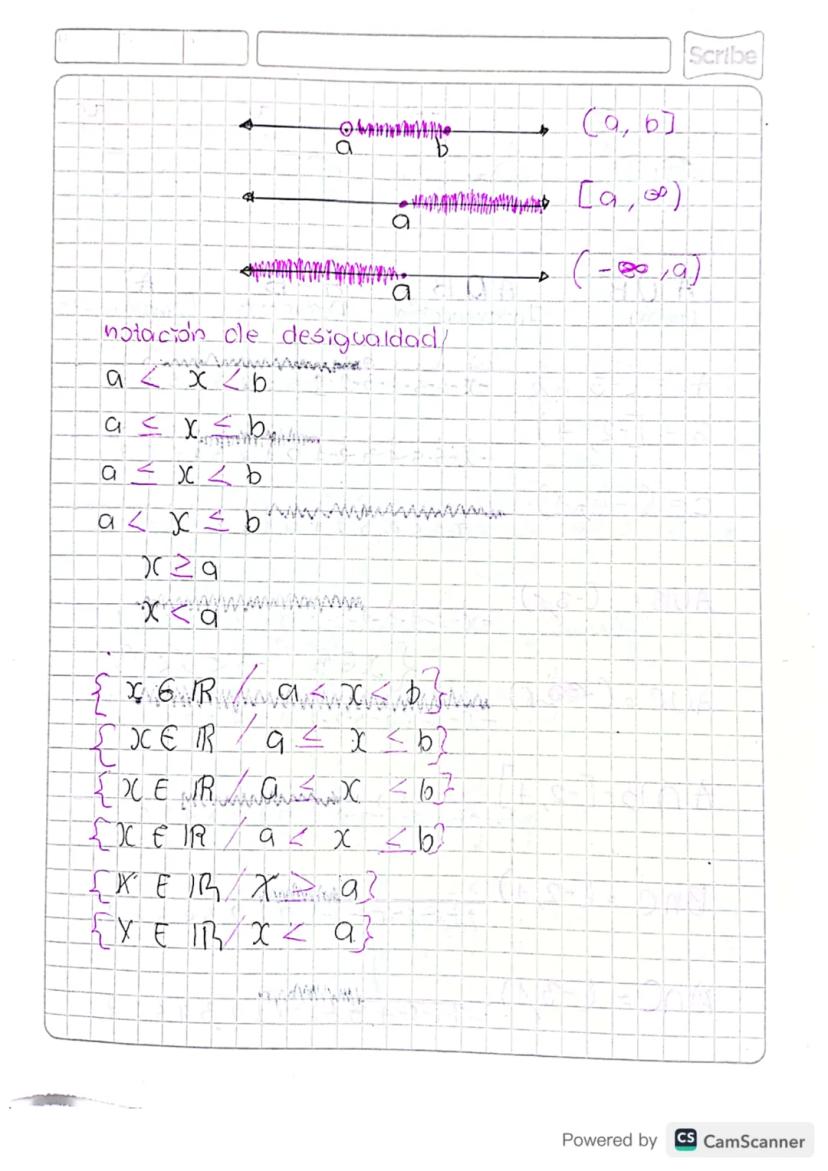 Scribe
(a, b]
a b
[a, ∞)
a
(-∞, a)
a
notación de desigualdad/
a < x < b
a ≤ x ≤ b
a ≤ x < b
a < x ≤ b
x ≥ a
x < a
{ x ∈ ℝ / a < x < b}
{ x ∈ ℝ / a ≤ x ≤ b}
{ x ∈ ℝ / a ≤ x < b}
{ x ∈ ℝ / a < x ≤ b}
{ x ∈ ℝ / x ≥ a}
{ x ∈ ℝ / x < a}
Powered by CS CamScanner